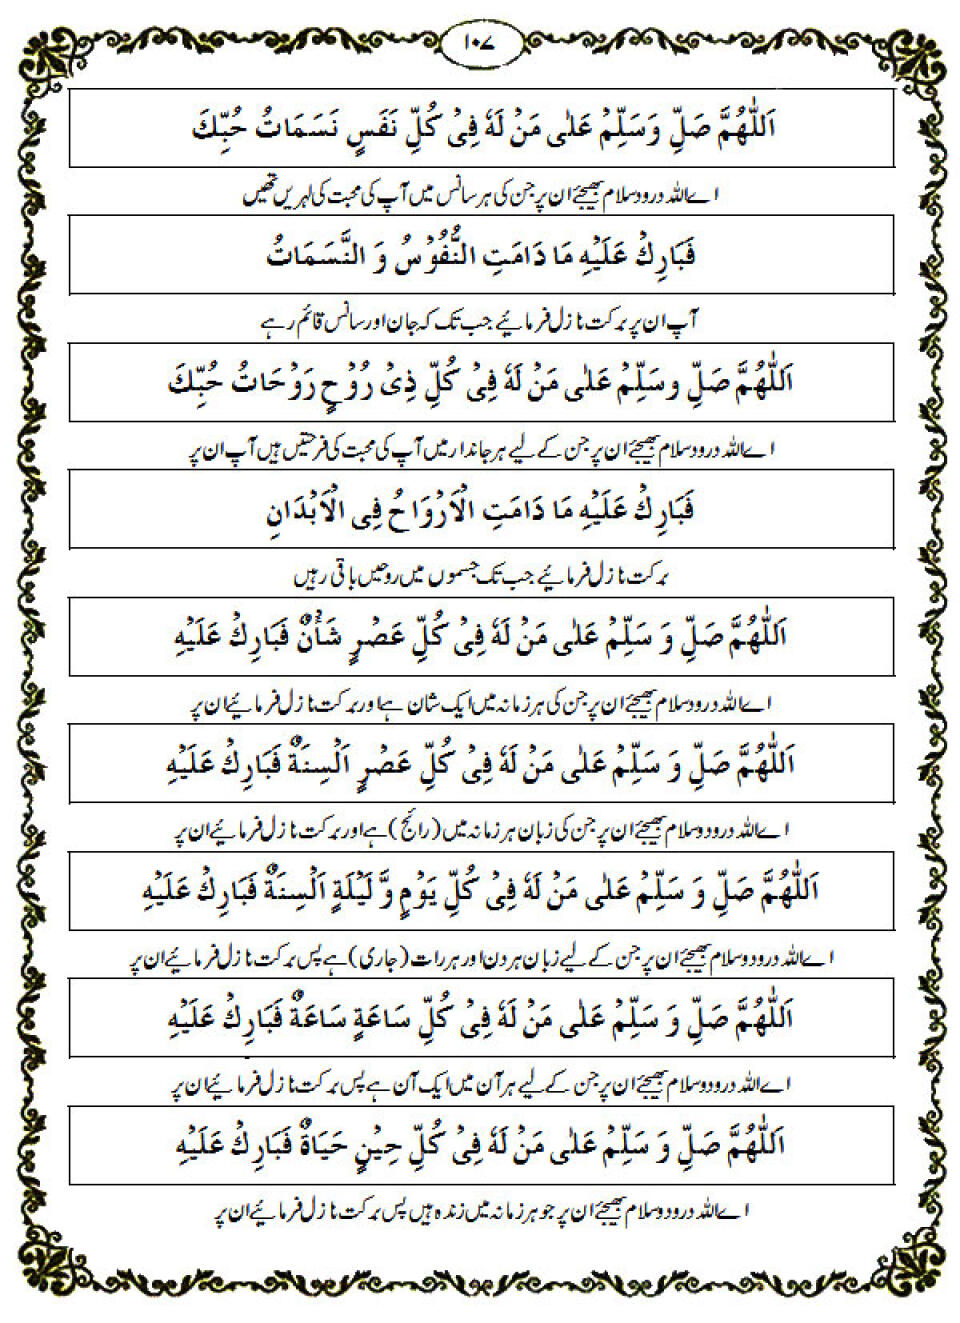 ۱۰۷
اَللّٰهُمَّ صَلِّ وَسَلِّمْ عَلٰی مَنْ لَهٗ فِیْ كُلِّ نَفَسٍ نَسَمَاتُ حُبِّكَ
اے اللہ درود سلام بھیجئے ان پر جن کی ہر سانس میں آپ کی محبت کی لہریں تھیں
فَبَارِكْ عَلَيْهِ مَا دَامَتِ النُّفُوْسُ وَ النَّسَمَاتُ
آپ ان پر برکت نازل فرمائیے جب تک کہ جان اور سانس قائم رہے
اَللّٰهُمَّ صَلِّ وسَلِّمْ عَلٰی مَنْ لَهٗ فِیْ كُلِّ ذِیْ رُوْحٍ رَوْحَاتُ حُبِّكَ
اے اللہ درود سلام بھیجئے ان پر جن کے لیے ہر جاندار میں آپ کی محبت کی فرحتیں ہیں آپ ان پر
فَبَارِكْ عَلَيْهِ مَا دَامَتِ الْاَرْوَاحُ فِی الْاَبْدَانِ
برکت نازل فرمائیے جب تک جسموں میں روحیں باقی رہیں
اَللّٰهُمَّ صَلِّ وَ سَلِّمْ عَلٰی مَنْ لَهٗ فِیْ كُلِّ عَصْرٍ شَأْنٌ فَبَارِكْ عَلَيْهِ
اے اللہ درود سلام بھیجئے ان پر جن کی ہر زمانہ میں ایک شان ہے اور برکت نازل فرمائیے ان پر
اَللّٰهُمَّ صَلِّ وَ سَلِّمْ عَلٰی مَنْ لَهٗ فِیْ كُلِّ عَصْرٍ اَلْسِنَةٌ فَبَارِكْ عَلَيْهِ
اے اللہ درود و سلام بھیجئے ان پر جن کی زبان ہر زمانہ میں (رائج) ہے اور برکت نازل فرمائیے ان پر
اَللّٰهُمَّ صَلِّ وَ سَلِّمْ عَلٰی مَنْ لَهٗ فِیْ كُلِّ يَوْمٍ وَّ لَيْلَةٍ اَلْسِنَةٌ فَبَارِكْ عَلَيْهِ
اے اللہ درود و سلام بھیجئے ان پر جن کے لیے زبان ہر دن اور ہر رات (جاری) ہے پس برکت نازل فرمائیے ان پر
اَللّٰهُمَّ صَلِّ وَ سَلِّمْ عَلٰی مَنْ لَهٗ فِیْ كُلِّ سَاعَةٍ سَاعَةٌ فَبَارِكْ عَلَيْهِ
اے اللہ درود و سلام بھیجئے ان پر جن کے لیے ہر آن میں ایک آن ہے پس برکت نازل فرمائیے ان پر
اَللّٰهُمَّ صَلِّ وَ سَلِّمْ عَلٰی مَنْ لَهٗ فِیْ كُلِّ حِيْنٍ حَيَاةٌ فَبَارِكْ عَلَيْهِ
اے اللہ درود و سلام بھیجئے ان پر جو ہر زمانہ میں زندہ ہیں پس برکت نازل فرمائیے ان پر